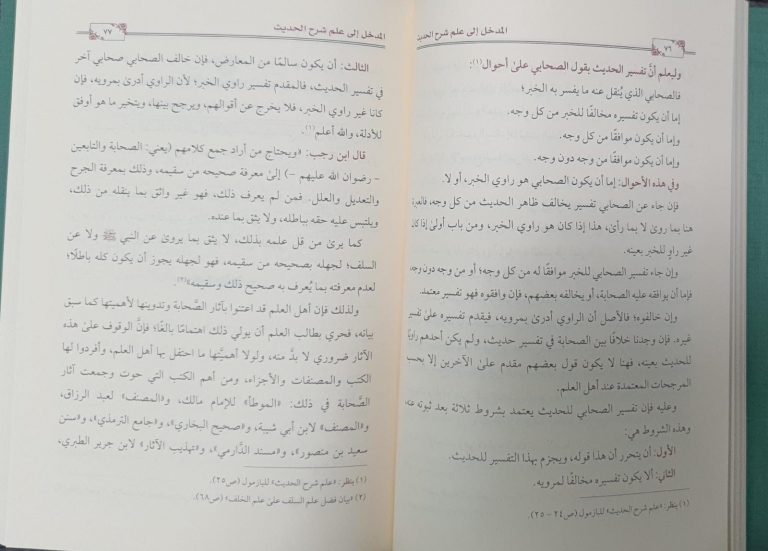 المدخل إلى علم شرح الحديث
٧٦
وليعلم أنَّ تفسير الحديث بقول الصحابي علىٰ أحوال(١):
فالصحابي الذي يُنقل عنه ما يفسر به الخبر؛
إما أن يكون تفسيره مخالفًا للخبر من كل وجه.
وإما أن يكون موافقًا من كل وجه.
وإما أن يكون موافقًا من وجه دون وجه.
وفي هذه الأحوال: إما أن يكون الصحابي هو راوي الخبر، أو لا.
فإن جاء عن الصحابي تفسير يخالف ظاهر الحديث من كل وجه، فالعبرة
هنا بما روىٰ لا بما رأىٰ، هذا إذا كان هو راوي الخبر، ومن باب أولىٰ إذا كان
غير راوٍ للخبر بعينه.
وإن جاء تفسير الصحابي للخبر موافقًا له من كل وجه؛ أو من وجه دون وجه،
فإما أن يوافقه عليه الصحابة، أو يخالفه بعضهم، فإن وافقوه فهو تفسير معتمد.
وإن خالفوه؛ فالأصل أن الراوي أدرىٰ بمرويه، فيقدم تفسيره علىٰ تفسير
غيره. فإن وجدنا خلافًا بين الصحابة في تفسير حديث، ولم يكن أحدهم راويًا
للحديث بعينه، فهنا لا يكون قول بعضهم مقدم علىٰ الآخرين إلا بحسب
المرجحات المعتمدة عند أهل العلم.
وعليه فإن تفسير الصحابي للحديث يعتمد بشروط ثلاثة بعد ثبوته عنه
وهذه الشروط هي:
الأول: أن يتحرر أن هذا قوله، ويجزم بهذا التفسير للحديث.
الثاني: ألا يكون تفسيره مخالفًا لمرويه.
(١) ينظر: «علم شرح الحديث» للبازمول (ص٢٤ – ٢٥).
المدخل إلى علم شرح الحديث
٧٧
الثالث: أن يكون سالمًا من المعارض، فإن خالف الصحابي صحابي آخر
في تفسير الحديث، فالمقدم تفسير راوي الخبر؛ لأن الراوي أدرىٰ بمرويه، فإن
كانا غير راوي الخبر، فلا يخرج عن أقوالهم، ويرجح بينها، ويتخير ما هو أوفق
للأدلة، والله أعلم(١).
قال ابن رجب: «ويحتاج من أراد جمع كلامهم (يعني: الصحابة والتابعين
– رضوان الله عليهم –) إلىٰ معرفة صحيحه من سقيمه، وذلك بمعرفة الجرح
والتعديل والعلل. فمن لم يعرف ذلك، فهو غير واثق بما ينقله من ذلك،
ويلتبس عليه حقه بباطله، ولا يثق بما عنده.
كما يرىٰ من قل علمه بذلك، لا يثق بما يروىٰ عن النبي ﷺ ولا عن
السلف؛ لجهله بصحيحه من سقيمه، فهو لجهله يجوز أن يكون كله باطلًا؛
لعدم معرفته بما يُعرف به صحيح ذلك وسقيمه»(٢).
ولذلك فإن أهل العلم قد اعتنوا بآثار الصَّحابة وتدوينها لأهميتها كما سبق
بيانه، فحري بطالب العلم أن يولي ذلك اهتمامًا بالغًا؛ فإنَّ الوقوف علىٰ هذه
الآثار ضروري لا بدَّ منه، ولولا أهميَّتها ما احتفل بها أهل العلم، وأفردوا لها
الكتب والمصنفات والأجزاء، ومن أهم الكتب التي حوت وجمعت آثار
الصَّحابة في ذلك: «الموطأ» للإمام مالك، و«المصنف» لعبد الرزاق،
و«المصنف» لابن أبي شيبة، و«صحيح البخاري»، و«جامع الترمذي»، و«سنن
سعيد بن منصور»، و«مسند الدَّارمي»، و«تهذيب الآثار» لابن جرير الطبري،
(١) ينظر: «علم شرح الحديث» للبازمول (ص٢٥).
(٢) «بيان فضل علم السلف علىٰ علم الخلف» (ص٦٨).